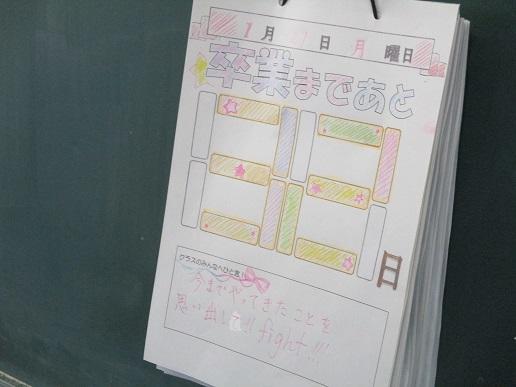 1月 日 月曜日
卒業まであと
32日
クラスのみんなへひと言!
今までやってきたことを
思い出して!! fight!!!